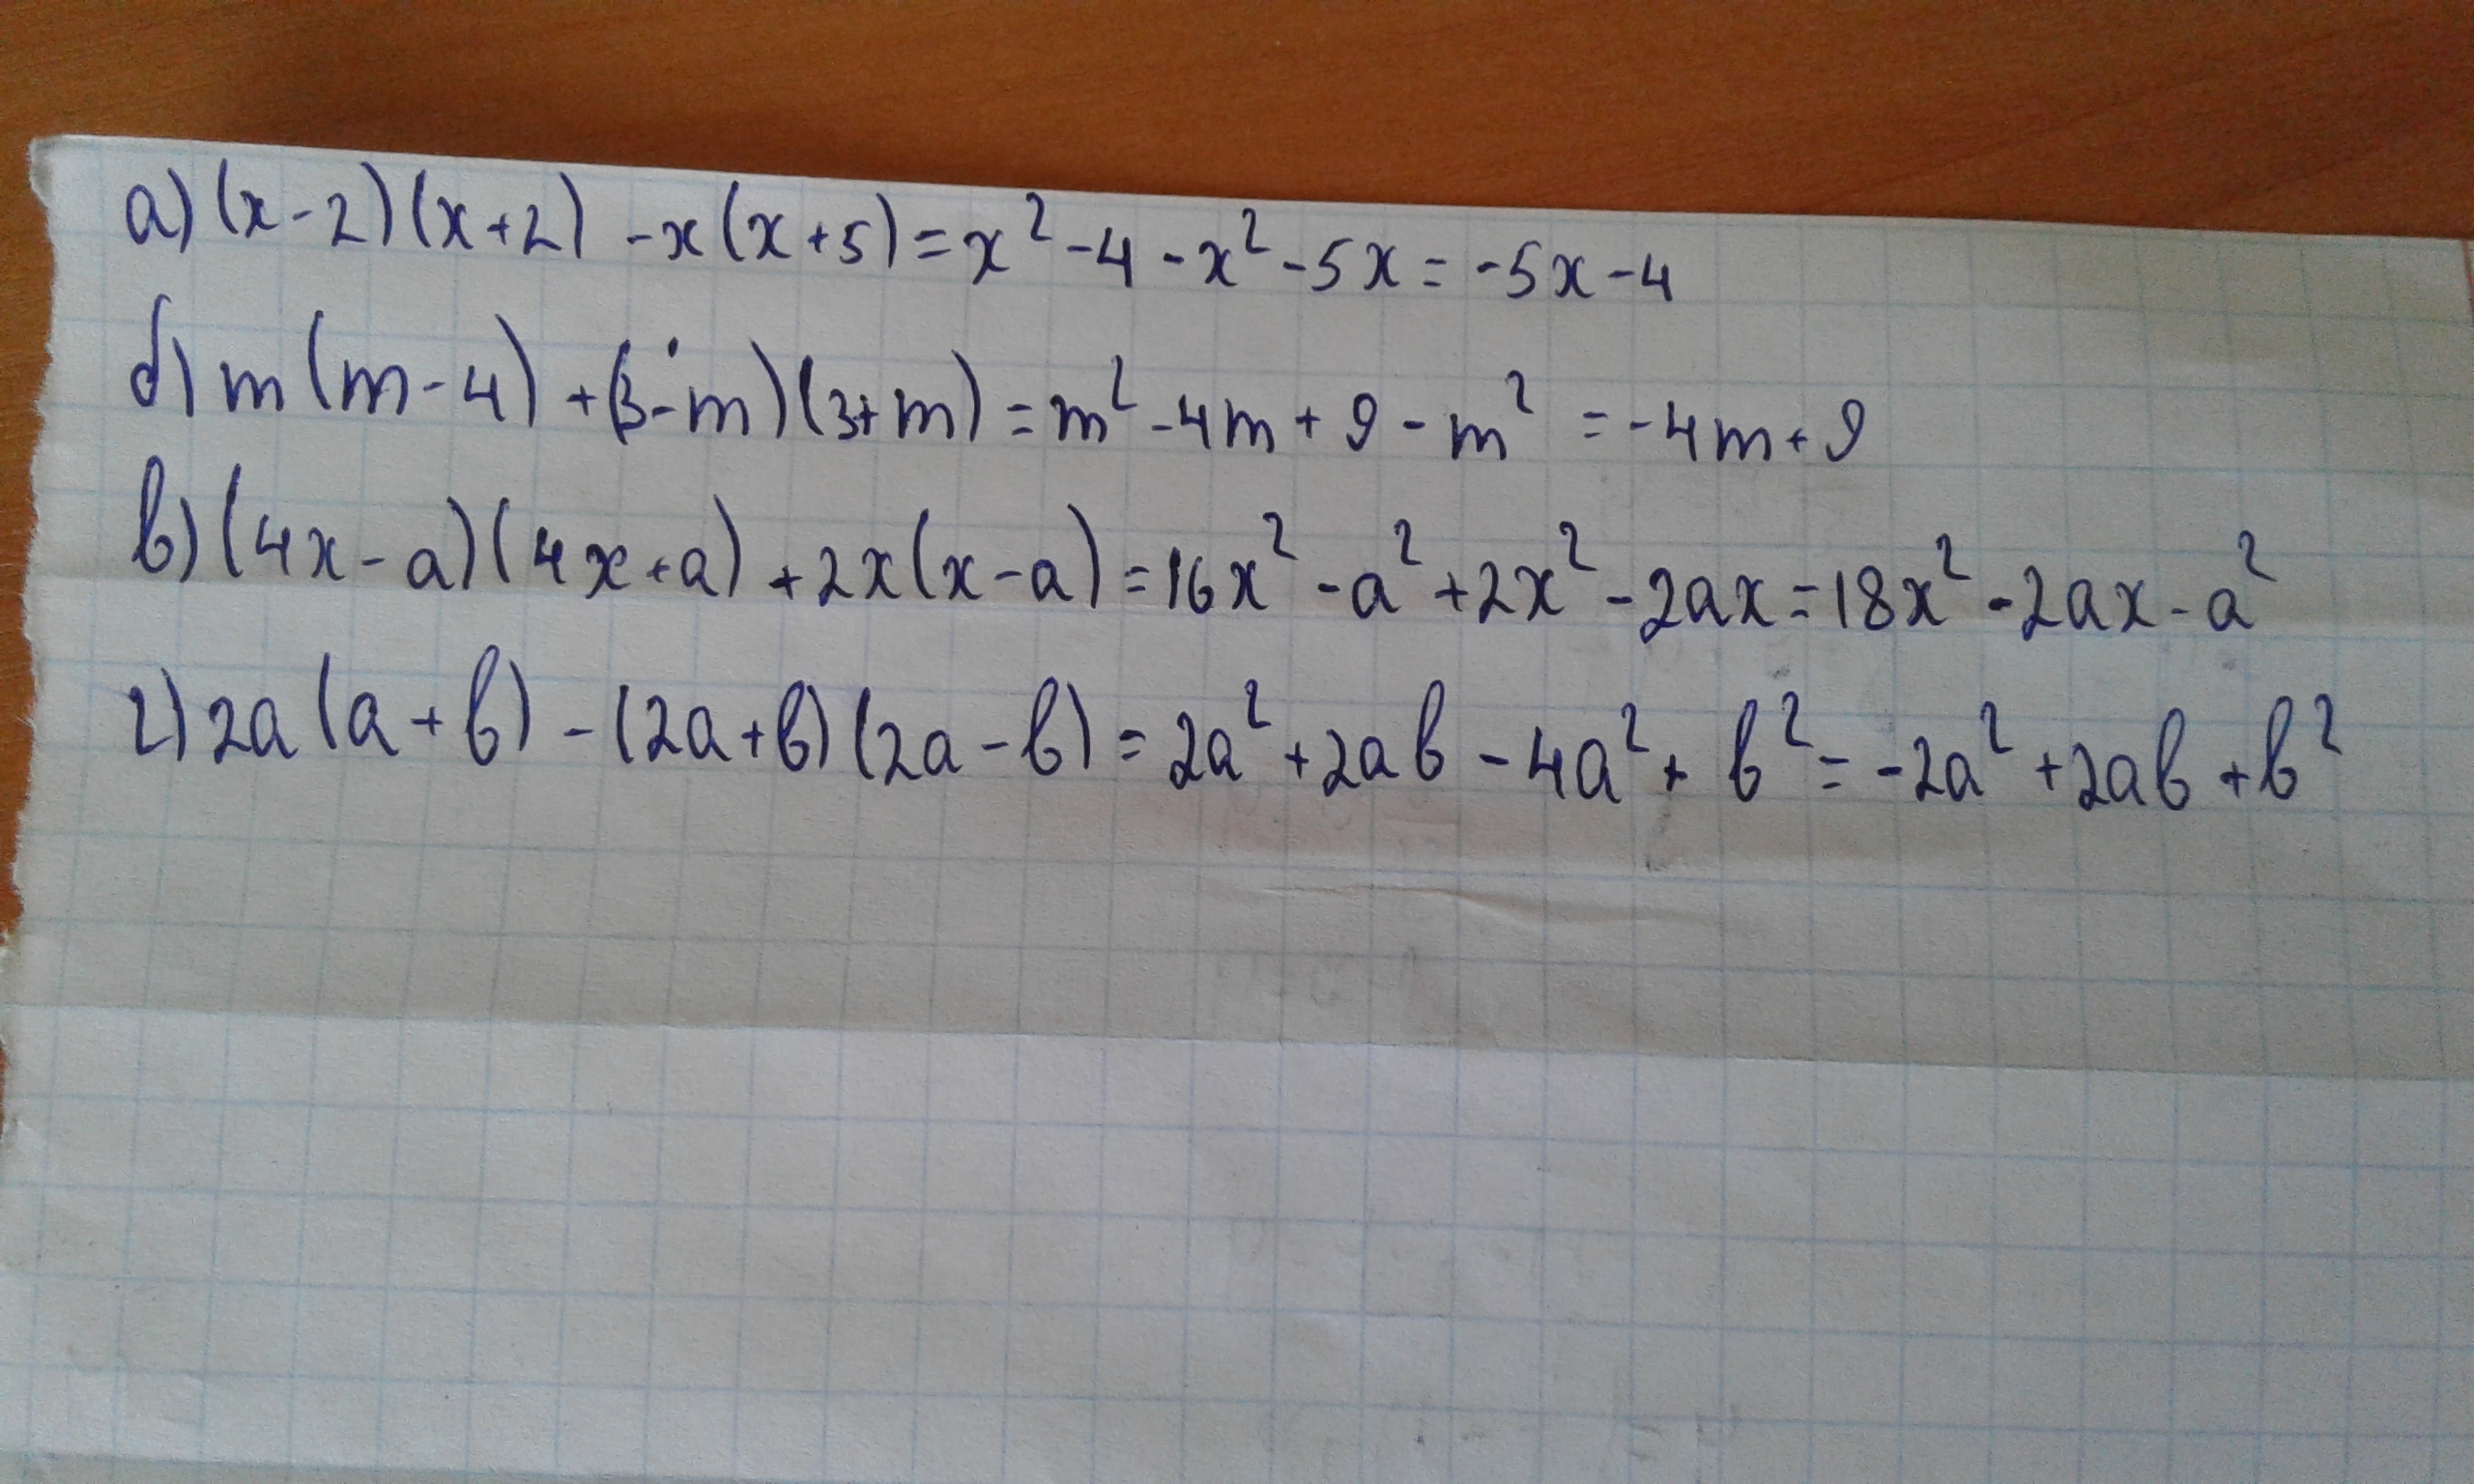 а) (x-2)(x+2) -x(x+5)=x²-4-x²-5x=-5x-4
б) m(m-4)+(3-m)(3+m)=m²-4m+9-m²=-4m+9
в) (4x-a)(4x+a)+2x(x-a)=16x²-a²+2x²-2ax=18x²-2ax-a²
г) 2a(a+b)-(2a+b)(2a-b)=2a²+2ab-4a²+b²=-2a²+2ab+b²